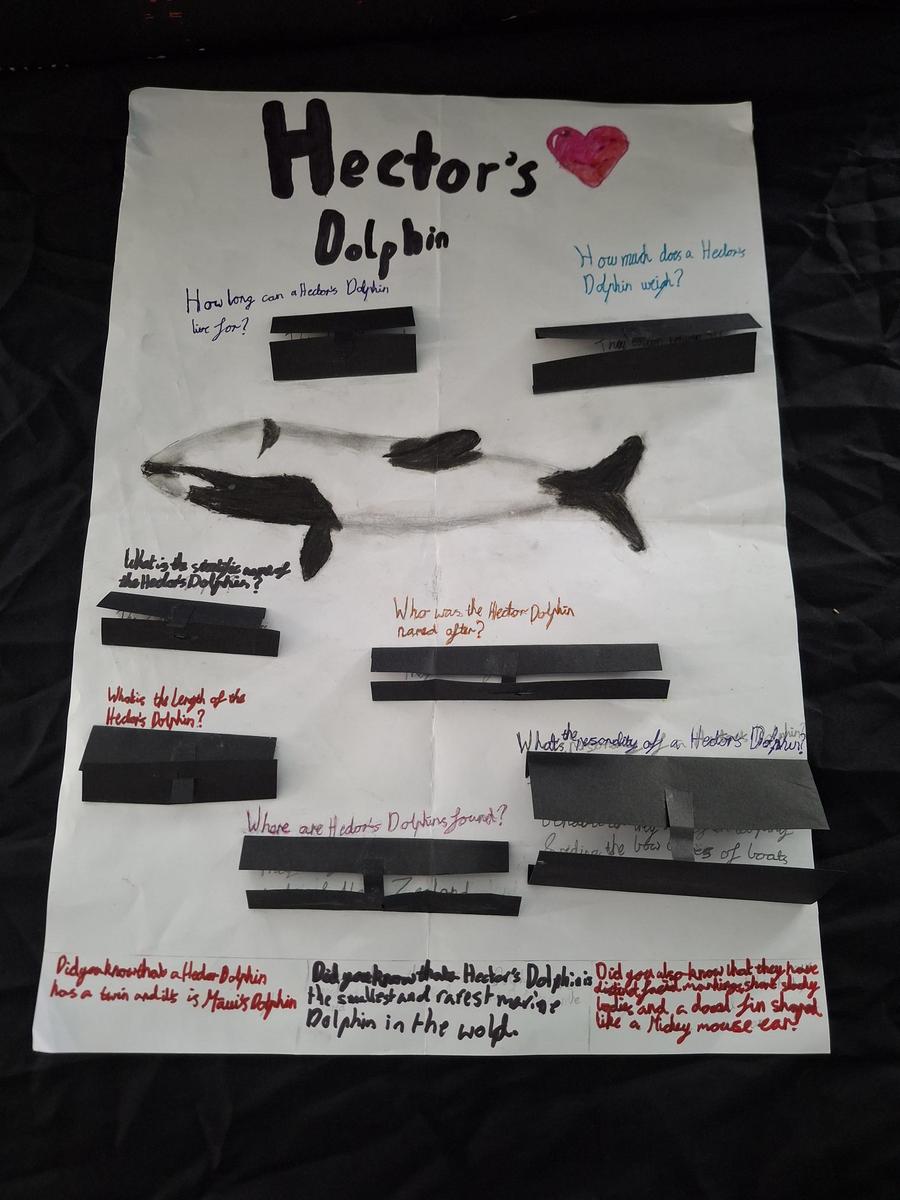 Hector's
Dolphin
How long can a Hector's Dolphin
live for?
How much does a Hector's
Dolphin weigh?
They
What is the scientific name of
the Hector's Dolphin?
Who was the Hector Dolphin
named after?
What is the length of the
Hector's Dolphin?
What's the personality of a Hector's Dolphin?
& riding the bow of boats
Where are Hector's Dolphins found?
Zealand
Did you know that a Hector Dolphin
has a twin and its is Maui's Dolphin
Did you know that Hector's Dolphin is
the smallest and rarest marine
Dolphin in the wold.
Did you also know that they have
distinct facial markings, short stocky
bodies and a dosal fin shaped
like a Mickey mouse ear